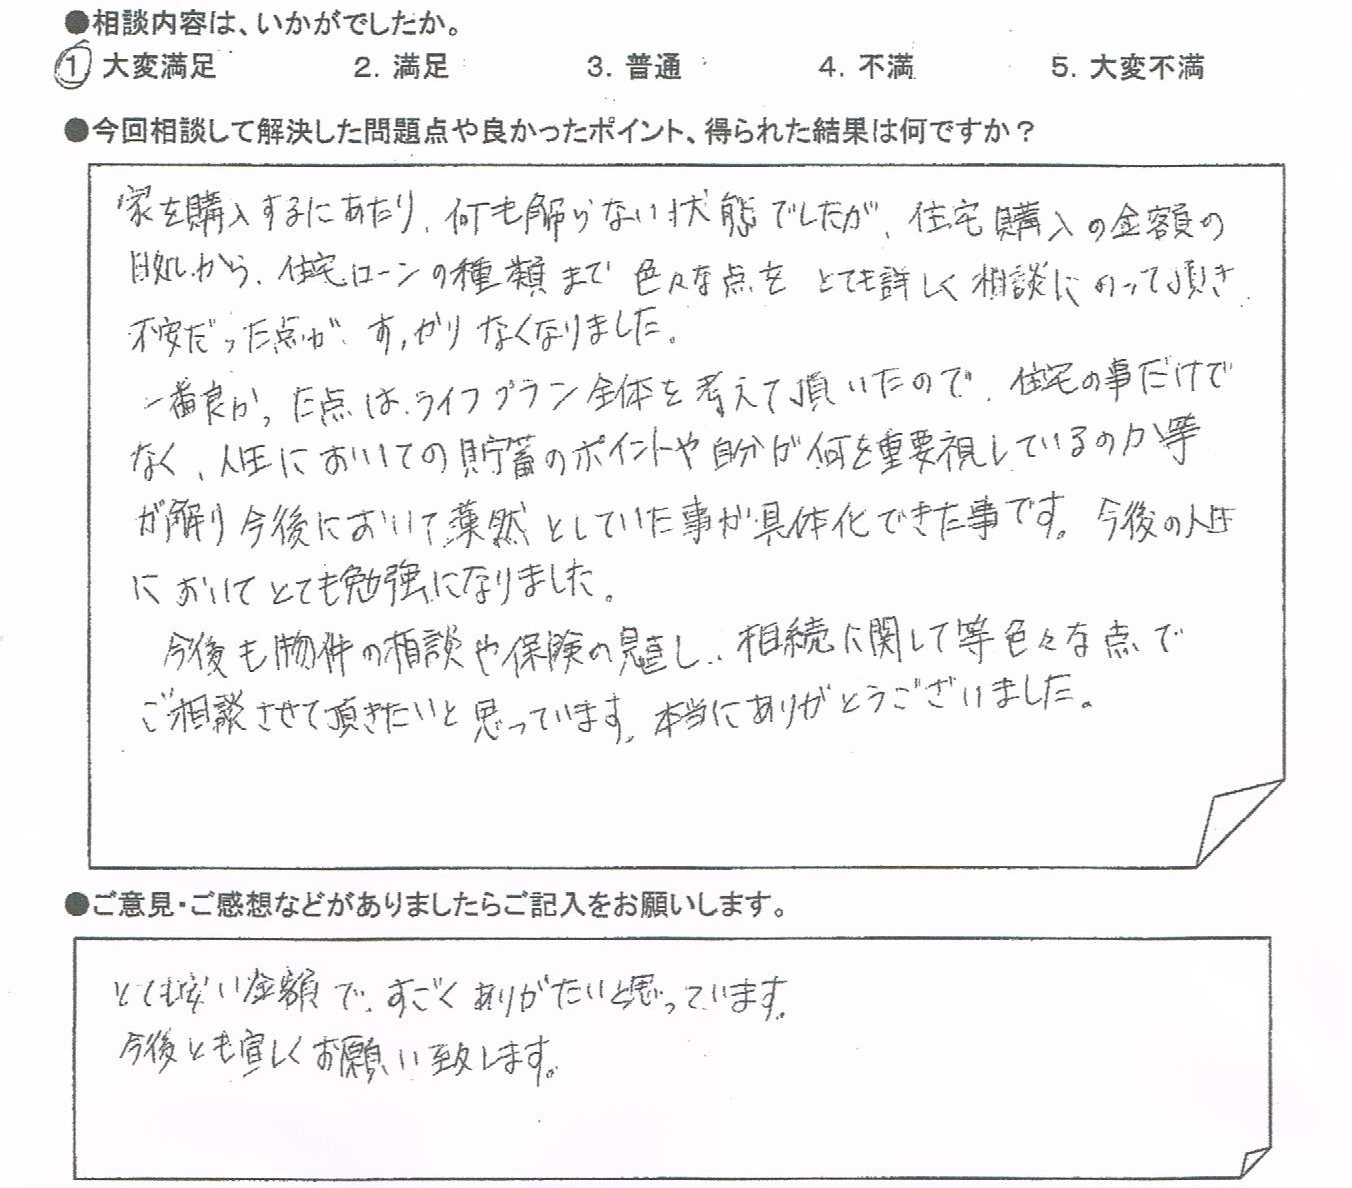 ●相談内容は、いかがでしたか。
① 大変満足 2. 満足 3. 普通 4. 不満 5. 大変不満
●今回相談して解決した問題点や良かったポイント、得られた結果は何ですか？
家を購入するにあたり、何も解らない状態でしたが、住宅購入の金額の
から、住宅ローンの種類まで色々な点をとても詳しく相談にのって頂き
不安だった点が、すっかりなくなりました。
一番良かった点は、ライフプラン全体を考えて頂いたので、住宅の事だけで
なく、人生においての貯蓄のポイントや自分が何を重要視しているのか等
が解り今後において漠然としていた事が具体化できた事です。今後の人生
においてとても勉強になりました。
今後も物件の相談や保険の見直し、相続に関して等色々な点で
ご相談させて頂きたいと思っています。本当にありがとうございました。
●ご意見・ご感想などがありましたらご記入をお願いします。
とても安い金額で、すごくありがたいと思っています。
今後とも宜しくお願い致します。